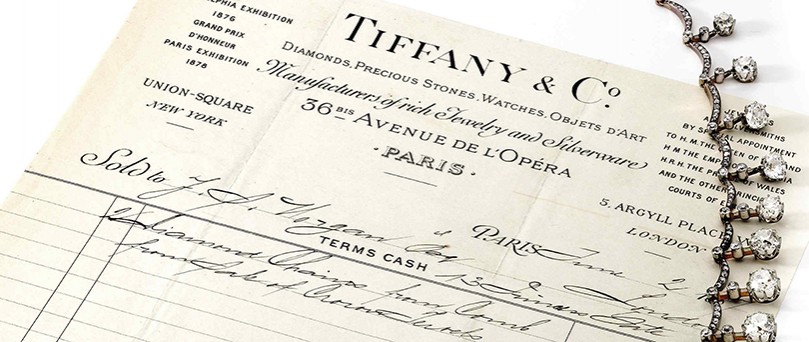 PHIA EXHIBITION
1876
GRAND PRIX
D'HONNEUR
PARIS EXHIBITION
1878
UNION-SQUARE
NEW YORK
TIFFANY & Cº
DIAMONDS, PRECIOUS STONES, WATCHES, OBJETS D'ART
Manufacturers of rich Jewelry and Silverware
36 BIS AVENUE DE L'OPÉRA
PARIS
BY SPECIAL APPOINTMENT
TO H.M. THE QUEEN OF
H M THE EMP
H.R.H. THE PRINCE OF WALES
AND THE OTHER PRINCI
COURTS OF E
5. ARGYLL PLACE
LONDON
Sold to J. S. Morgan Esq
PARIS June 2
13 Princes Gate
TERMS CASH
2 Diamond Chains from Comb
from Sale of Crown Jewels